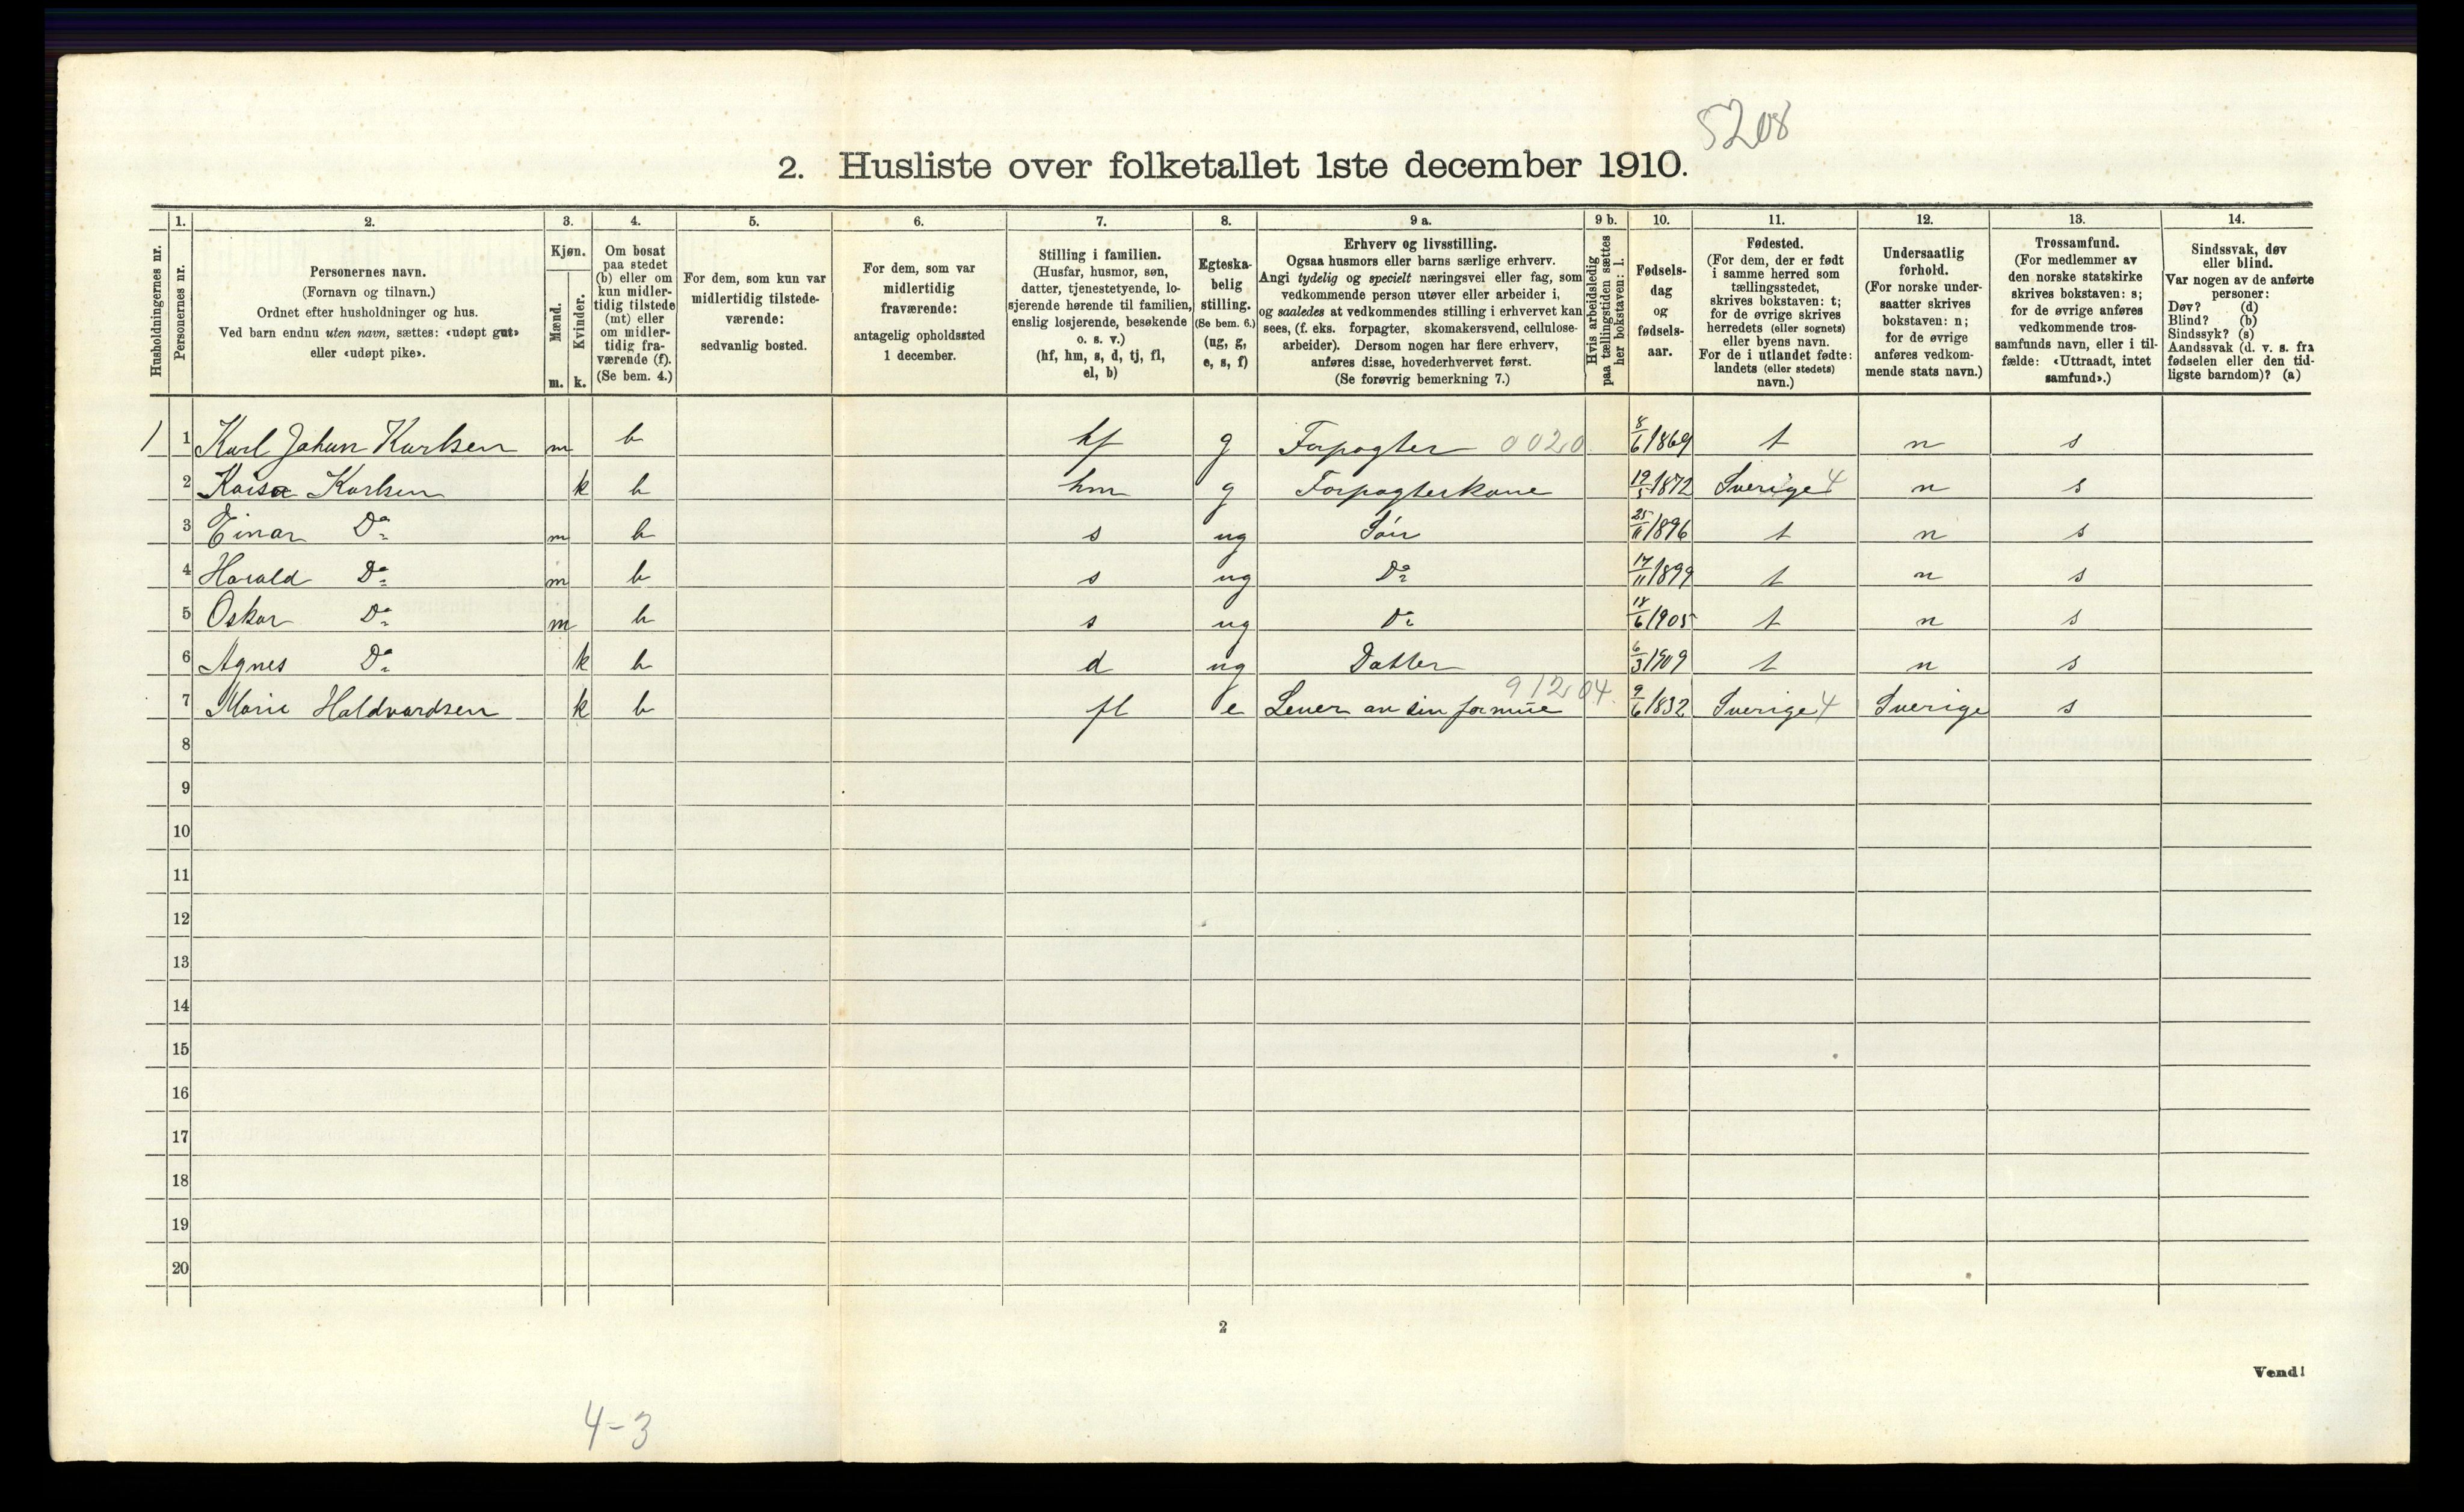 5208
2. Husliste over folketallet 1ste december 1910.
Husholdningernes nr.
1.
Personernes nr.
2.
Personernes navn.
(Fornavn og tilnavn.)
Ordnet efter husholdninger og hus.
Ved barn endnu uten navn, sættes: «udøpt gut»
eller «udøpt pike».
3.
Kjøn.
Mænd.
m.
Kvinder.
k.
4.
Om bosat
paa stedet
(b) eller om
kun midler-
tidig tilstede
(mt) eller
om midler-
tidig fra-
værende (f).
(Se bem. 4.)
5.
For dem, som kun var
midlertidig tilstede-
værende:
sedvanlig bosted.
6.
For dem, som var
midlertidig
fraværende:
antagelig opholdssted
1 december.
7.
Stilling i familien.
(Husfar, husmor, søn,
datter, tjenestetyende, lo-
sjerende hørende til familien,
enslig losjerende, besøkende
o. s. v.)
(hf, hm, s, d, tj, fl,
el, b)
8.
Egteska-
belig
stilling.
(Se bem. 6.)
(ug, g,
e, s, f)
9 a.
Erhverv og livsstilling.
Ogsaa husmors eller barns særlige erhverv.
Angi tydelig og specielt næringsvei eller fag, som
vedkommende person utøver eller arbeider i,
og saaledes at vedkommendes stilling i erhvervet kan
sees, (f. eks. forpagter, skomakersvend, cellulose-
arbeider). Dersom nogen har flere erhverv,
anføres disse, hovederhvervet først.
(Se forøvrig bemerkning 7.)
9 b.
Hvis arbeidsledig
paa tællingstiden sættes
her bokstaven: l.
10.
Fødsels-
dag
og
fødsels-
aar.
11.
Fødested.
(For dem, der er født
i samme herred som
tællingsstedet,
skrives bokstaven: t;
for de øvrige skrives
herredets (eller sognets)
eller byens navn.
For de i utlandet fødte:
landets (eller stedets)
navn.)
12.
Undersaatlig
forhold.
(For norske under-
saatter skrives
bokstaven: n;
for de øvrige
anføres vedkom-
mende stats navn.)
13.
Trossamfund.
(For medlemmer av
den norske statskirke
skrives bokstaven: s;
for de øvrige anføres
vedkommende tros-
samfunds navn, eller i til-
fælde: «Uttraadt, intet
samfund».)
14.
Sindssvak, døv
eller blind.
Var nogen av de anførte
personer:
Døv? (d)
Blind? (b)
Sindssyk? (s)
Aandssvak (d. v. s. fra
fødselen eller den tid-
ligste barndom)? (a)
1 1 Karl Johan Karlsen m b hf g Forpagter 0020 8/6 1869 t n s
2 Kaisa Karlsen k b hm g Forpagterkone 19/5 1872 Sverige 4 n s
3 Einar Do m b s ug Søn 25/11 1896 t n s
4 Harald Do m b s ug Do 17/11 1899 t n s
5 Oskar Do m b s ug Do 18/6 1905 t n s
6 Agnes Do k b d ug Datter 6/3 1909 t n s
7 Marie Haldvardsen k b fl e Lever av sin formue 91204 9/6 1832 Sverige 4 Sverige s
8
9
10
11
12
13
14
15
16
17
18
19
20
2
Vend!
4-3